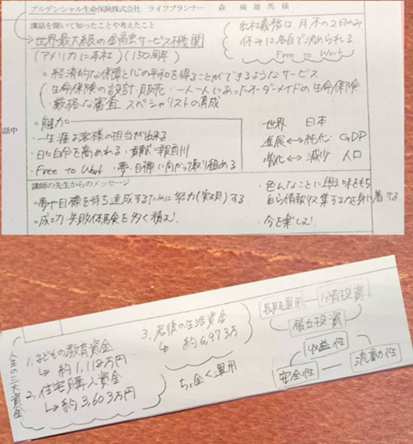 プルデンシャル生命保険株式会社 ライフプランナー 森 様
講話を聞いて知ったことや考えたこと
世界最大級の金融サービス機関
(アメリカに本社)(150周年)
出社義務は、月・木の2日のみ
休みは各自で決められる
Free to Work
経済的な保障と心の平和を得ることができるようなサービス
(生命保険の設計・販売 一人一人にあったオーダーメイドの生命保険
厳格な審査 スペシャリストの育成
話中
魅力
・一生涯お客様の担当が出来る
・日々自分を高めれる・貢献・報酬
・Free to Work ・夢、目標に向かって取り組める
世界 日本
進展↔鈍化 GDP
増化↔減少 人口
講師の先生からのメッセージ
・夢や目標を持ち達成するために努力(実現)する
・成功・失敗体験を多く積む!
・色んなことに興味をもち
自ら情報収集する力を身に着ける
・今を楽しむ!
人生の三大資金
1. 子どもの教育資金
↳約1,112万円
2. 住宅購入資金
↳約3,603万円
3. 老後の生活資金
↳約6,973万
長期運用 分散投資
積立投資
収益性
安全性 流動性